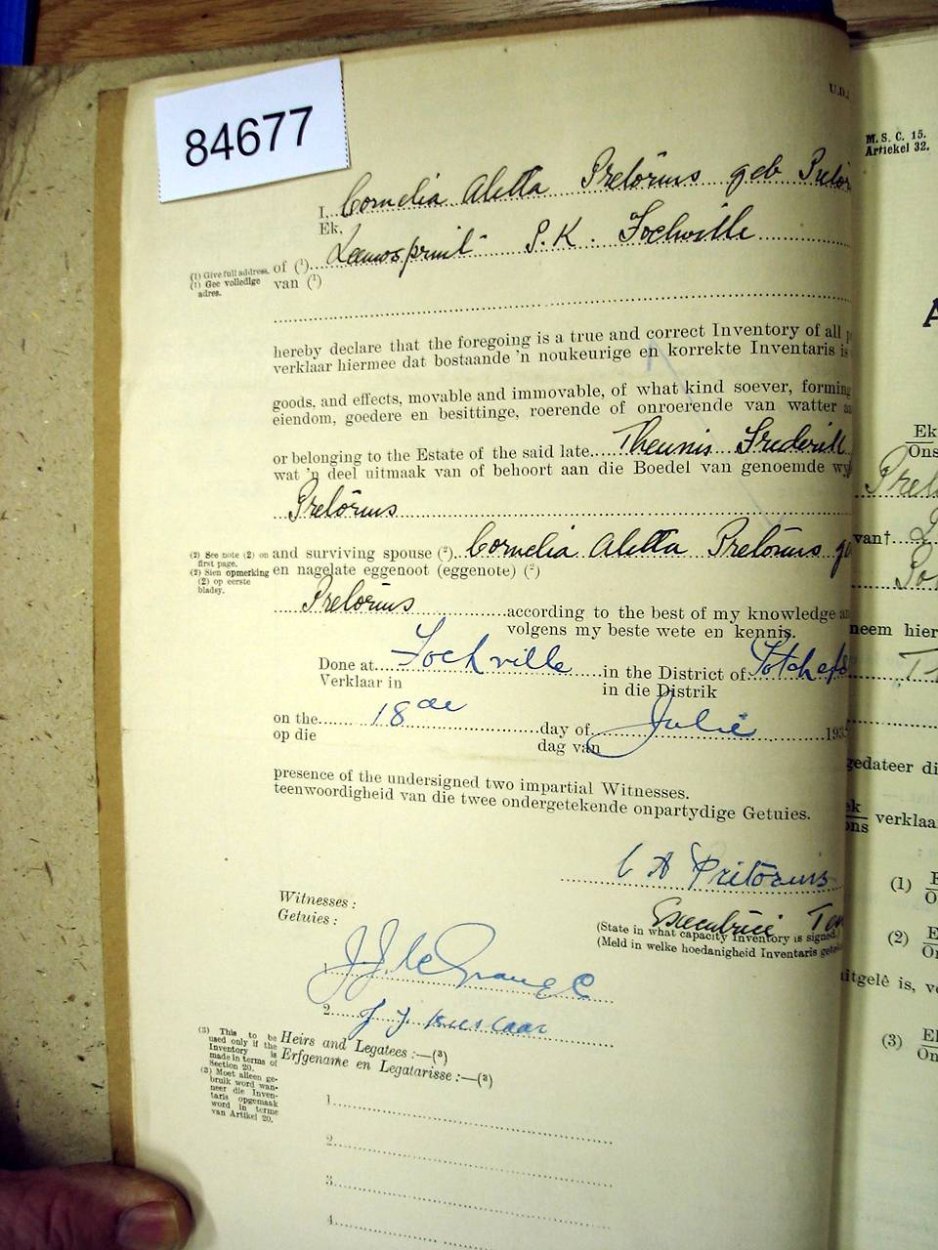 84677
U.D.
M. S. C. 15.
Artiekel 32.
I, Cornelia Aletta Pretorius geb Pretor
Ek,
of (¹) Leeuwspruit P.K. Fochville
van (¹)
(1) Give full address.
(1) Gee volledige
adres.
hereby declare that the foregoing is a true and correct Inventory of all
verklaar hiermee dat bostaande 'n noukeurige en korrekte Inventaris is
goods, and effects, movable and immovable, of what kind soever, forming
eiendom, goedere en besittinge, roerende of onroerende van watter
or belonging to the Estate of the said late Theunis Frederik
wat 'n deel uitmaak van of behoort aan die Boedel van genoemde
Pretorius
(2) See note (2) on
first page.
(2) Sien opmerking
(2) op eerste
bladsy.
and surviving spouse (²) Cornelia Aletta Pretorius
en nagelate eggenoot (eggenote) (²)
Pretorius according to the best of my knowledge
volgens my beste wete en kennis.
Done at Fochville in the District of Potchefs
Verklaar in in die Distrik
on the 18de day of Julie 193
op die dag van
presence of the undersigned two impartial Witnesses.
teenwoordigheid van die twee ondergetekende onpartydige Getuies.
C A Pretorius
Executrice
(State in what capacity Inventory is signed
(Meld in welke hoedanigheid Inventaris
Witnesses :
Getuies :
J.J. le Grange
2. J J
(3) This to be
used only if the
Inventory is
made in terms of
Section 20.
(3) Moet alleen ge-
bruik word wan-
neer die Inven-
taris opgemaak
word in terme
van Artikel 20.
Heirs and Legatees :—(³)
Erfgename en Legatarisse :—(³)
1.
2.
3.
4.
Ek
Ons
Pret
van†
neem hier
gedateer di
Ek
Ons verklaa
(1)
(2)
itgelê is, v
(3)